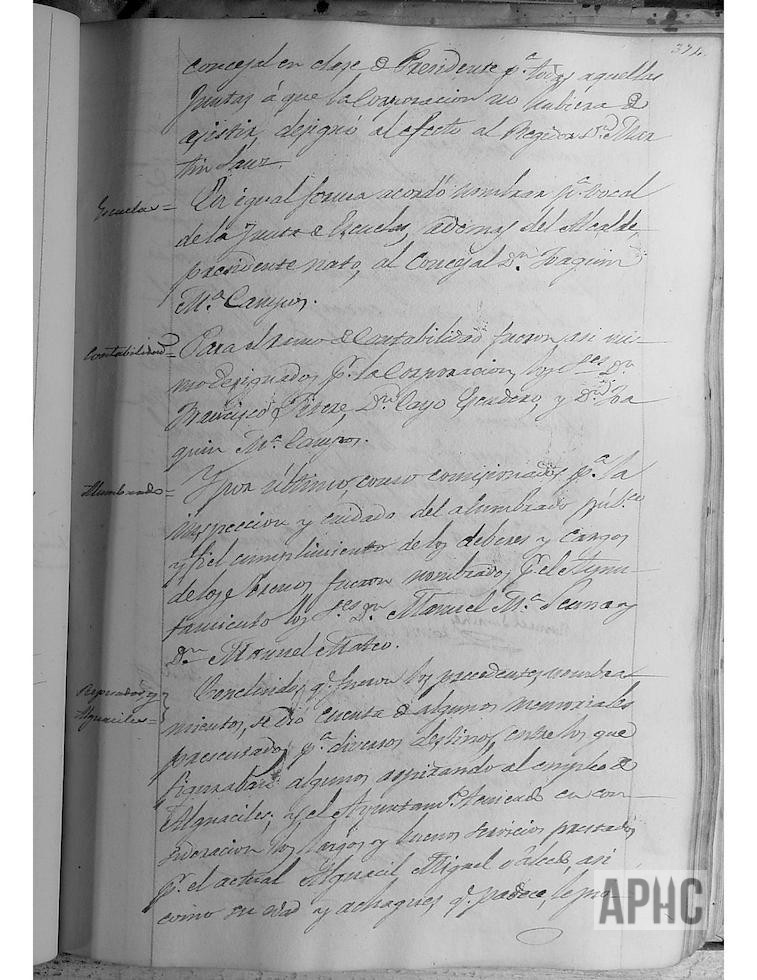 374.
concejal en clase de Presidente pª. todas aquellas
Juntas á que la Corporacion no hubiera de
asistir, designó al efecto al Regidor Dn. Mar
tin Sanz.
Escuelas =
Por igual forma acordó nombrar pª. vocal
de la Junta de Escuelas, ademas del Alcalde,
presidente nato, al Concejal Dn. Joaquin
Mª. Campos.
Contabilidad =
Para el ramo de Contabilidad fueron asi mis-
mo designados pr. la Corporacion, los Sres. Dn.
Francisco Dn. Cayo Escudero, y Dn. Joa
quin Mª. Campos.
Alumbrado =
Y por último, como comisionados pª. la
inspeccion y cuidado del alumbrado públco.
y fiel cumplimiento de los deberes y cargos
de los Serenos, fueron nombrados pr. el Ayun-
tamiento los Sres. Dn. Manuel Mª. y
Dn. Manuel Mateo.
Alguaciles =
Concluidos q. fueron los precedentes nombra-
mientos, se dió cuenta de algunos memoriales
presentados pª. diversos destinos, entre los que
figuraban algunos aspirando al empleo de
Alguaciles; y el Ayuntamto. teniendo en con-
sideracion los largos y buenos servicios prestados
pr. el actual Alguacil Miguel asi
como su edad y achaques q. padece, le
APHC